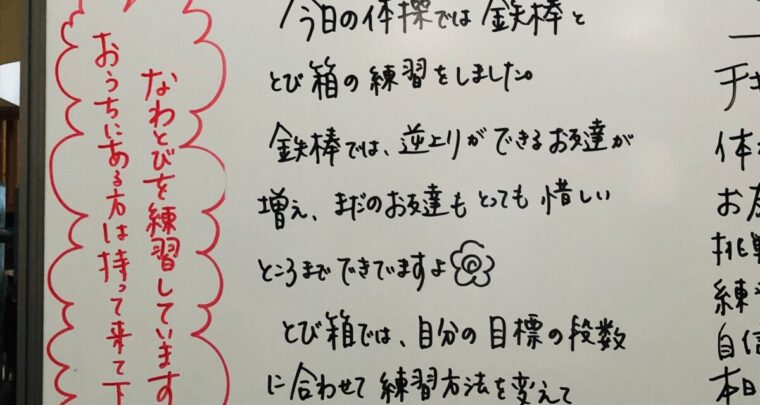 なわとびを練習しています
おうちにある方は持って来て下
今日の体操では鉄棒と
とび箱の練習をしました。
鉄棒では、逆上りができるお友達が
増え、まだのお友達もとっても惜しい
ところまでできでますよ
とび箱では、自分の目標の段数
に合わせて練習方法を変えて
体
お友
挑戦
練習
自信
本日